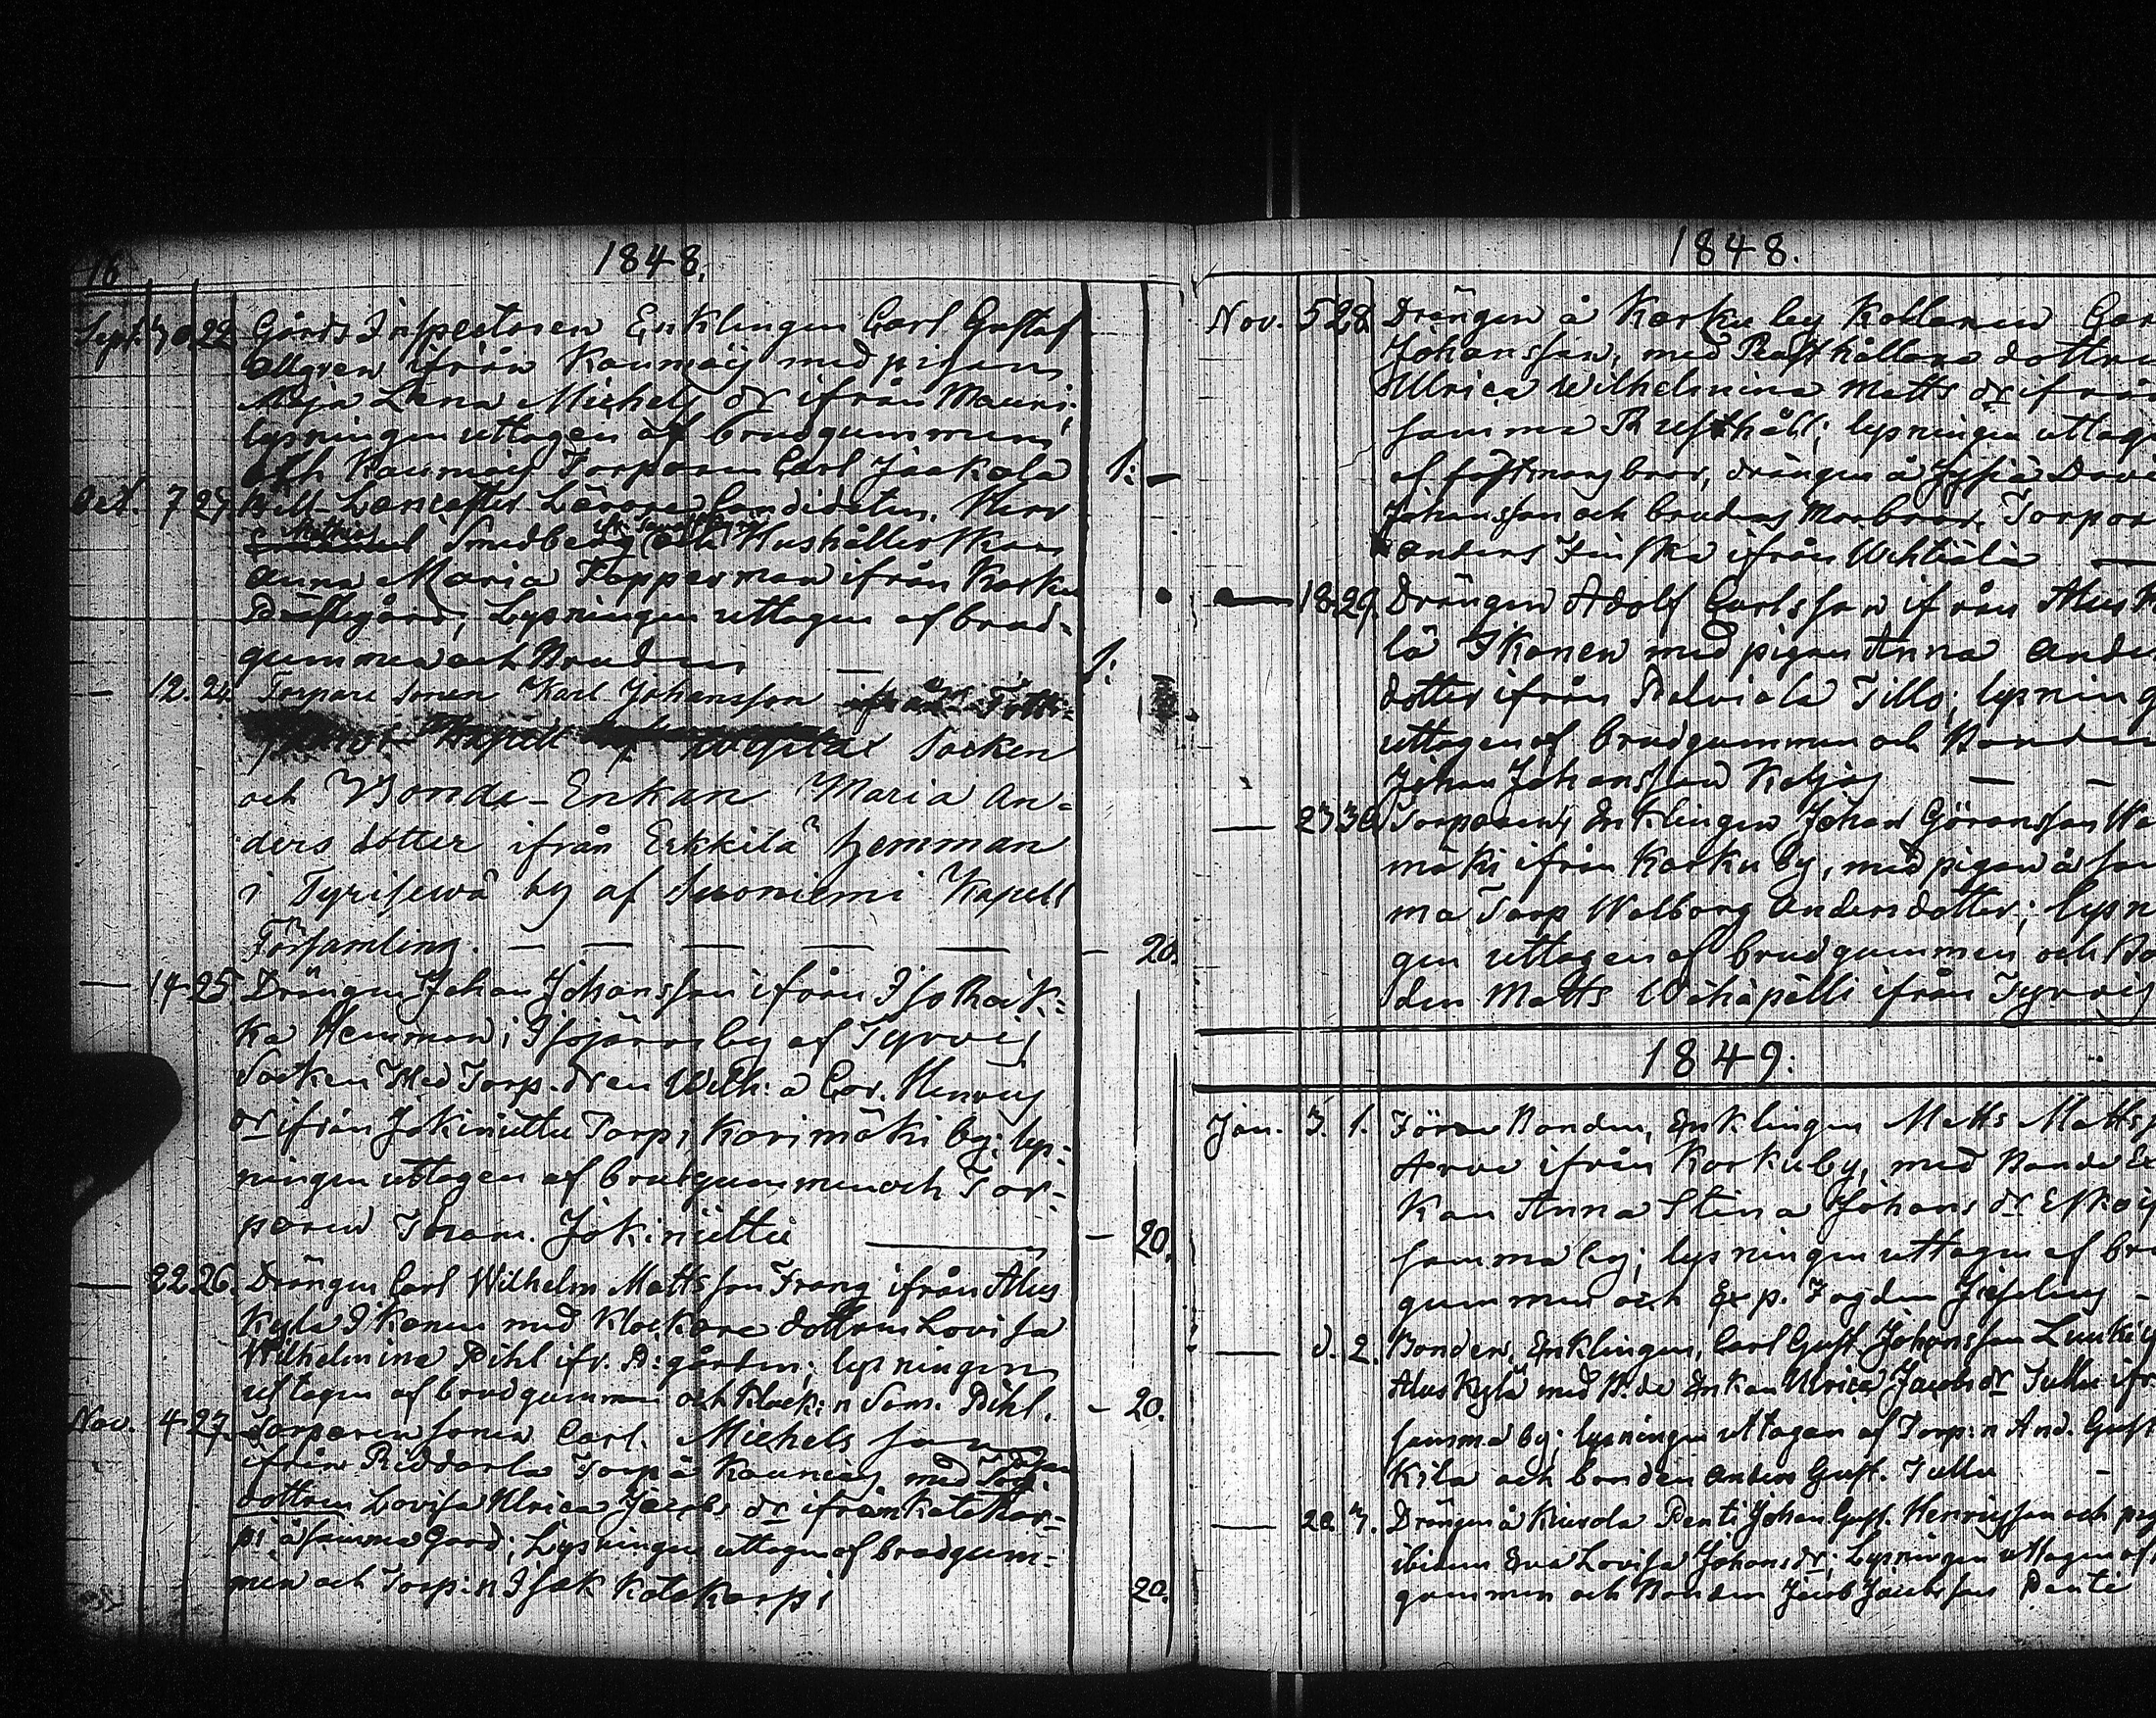 18
1848.
Sept. 30. 22. Gårds Inspectoren Enklingen Carl Gustaf
Allgren ifrån Kauniais med pigan
Maja Lena Michels dr ifrån Mauri;
lysningen uttagen af brudgummen
och Kauniais Torparen Carl Jaakola 1. –
Oct. 7. 23. Läraren Candidaten, Herr
Mathias Smedberg och Hushållerskan
Anna Maria Topperman ifrån Karku
Prästegård; Lysningen uttagen af brud-
gummen och Bruden — 1:
— 12. 24. Torpare Sonen Karl Johansson ifrån
Kapell af Socken
och Bonde-Enkan Maria An-
ders dotter ifrån Erkkilä hemman
i Tyrisewä by af Suoniemi Kapell
Församling. — — — — — – 20.
— 14. 25. Drängen Johan Johansson ifrån Iso
ka Hemman, i by af Tyrvis
Socken Med Torp. dren Wilh:a Car. Henrics
dr ifrån Jokiniittu Torp, Karimäki by; lys-
ningen uttagen af brudgummen och Tor-
paren Jokiniittu — – 20.
— 22. 26. Drängen Carl Wilhelm Mattsson Frang ifrån Alus
kylä Ikonen med Klockare dottren Lovisa
Wilhelmina Pihl ifr. P:gården; lysningen
uttagen af brudgummen och Klock:n Sam. Pihl. – 20.
Nov. 4. 27. Torparen sonen Carl Michelsson
ifrån Riddarla Torp å Kauniais med
dottren Lovisa Ulrica Jacobs dr ifrån Katakor-
pi å samma Gård; Lysningen uttagen af brudgum-
men och Torp:n Isak Katakorpi 20.
1848.
Nov. 5. 28. Drängen å Karku by Kallanen
Johansson, med Rusthållare dottren
Ulrica Wilhelmina Matts dr ifrån
samma Rusthåll; lysningen uttag
af fästmans bror, drängen å
Johansson och brudens Morbror, Torpar
Anders ifrån —
— 18. 29. Drängen Adolf Carlsson ifrån Alusky
lä Ikonen med pigan Anna Anders
dotter ifrån Pelviala Tills; lysning
uttagen af brudgummen och Bonden
Johan Johansson — –
— 23. 30. Torparen, Enklingen Johan Göransson
mäki ifrån Karku by, med pigan å sam
ma Torp Walborg Andersdotter; lysnin
gen uttagen af brudgummen och Bon
den Matts Wähäpälli ifrån Tyrvis
1849.
Jan. 3. 1. Förre Bonden, Enklingen Matts Matts
Arva ifrån Karku by, med Bonde En
kan Anna Stina Johans dr
samma by; lysningen uttagen af bru
gummen och Exp. Fogden
— d. 2. Bonden, Enklingen, Carl Gust. Johansson
Aluskylä med B.de Enkan Ulrica Jacobs dr Tullu ifr
samma by; lysningen uttagen af Torp:n And. Gust.
Kila och bonden Anders Gust. Tullu –
— 20. 3. Drängen å Kiurala Penti Johan Gust. Henricsson och pig
ibidem Eva Lovisa Johans dr; Lysningen uttagen af
gummen och Bonden Jacob Jacobsson Penti